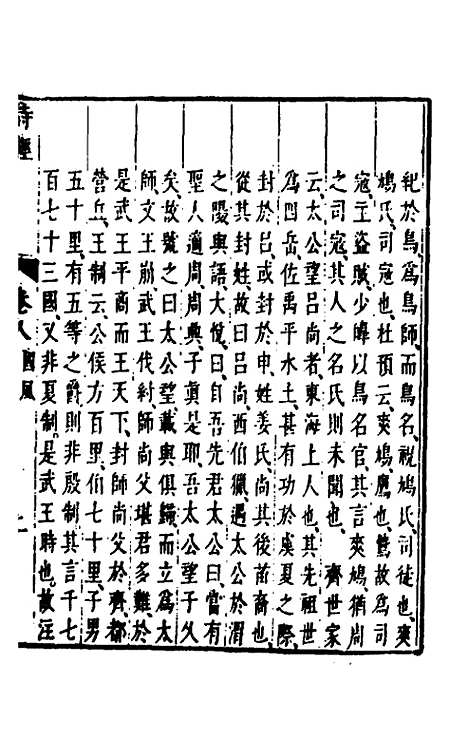 紀於鳥爲鳥師而鳥名、祝鳩氏、司徒也、爽
鳩氏、司寇也、杜預云、爽鳩、鷹也、鷙故爲司
寇、主盜賊、少皞以鳥名官、其言爽鳩、猶周
之司寇、其人之名氏則未聞也、　齊世家
云、太公望呂尚者、東海上人也、其先祖世
爲四岳、佐禹平水土、甚有功於虞夏之際、
封於呂、或封於申、姓姜氏、尚其後苗裔也、
從其封姓、故曰呂尚、西伯獵、遇太公於渭
之陽、與語大悅曰、自吾先君太公曰、當有
聖人適周、周興、子眞是耶、吾太公望子久
矣、故號之曰太公望、載與俱歸、而立爲太
師、文王崩、武王伐紂、師尚父堪君多難、於
是武王平商而王天下、封師尚父於齊、都
營丘、王制云、公侯方百里、伯七十里、子男
五十里、有五等之爵、則非殷制、其言千七
百七十三國、又非夏制、是武王時也、故注
詩經　卷八國風